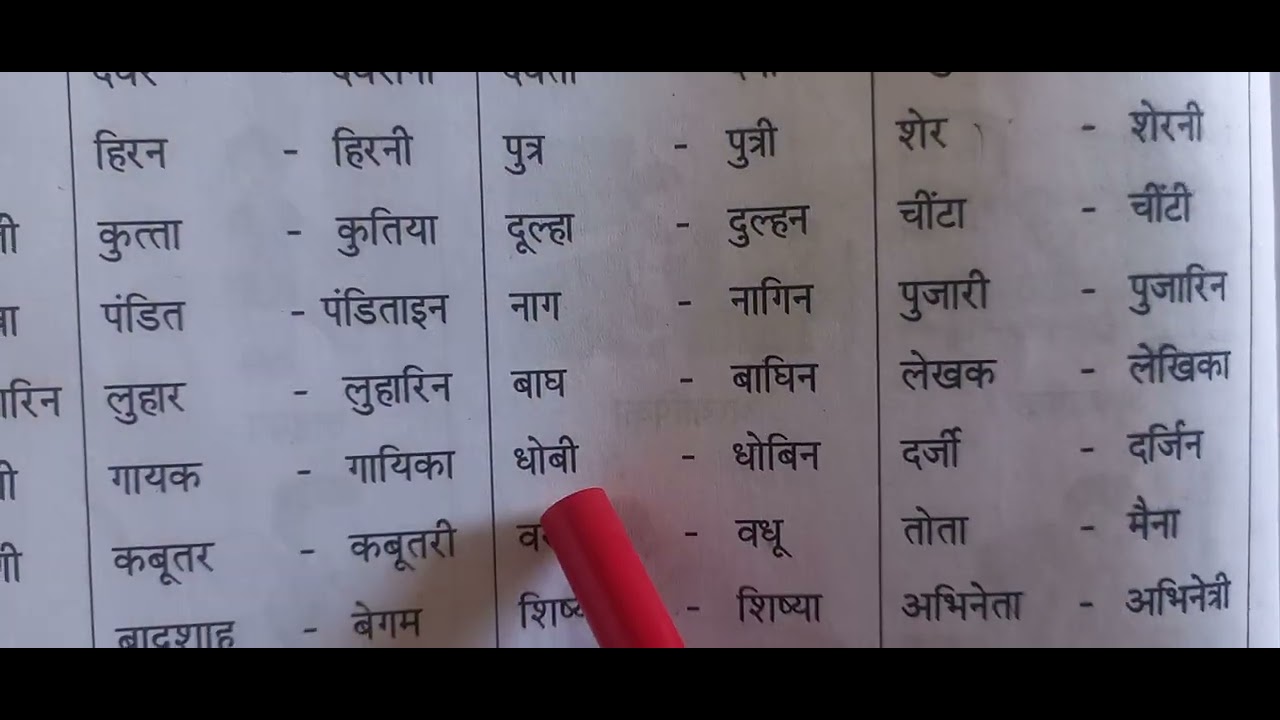 हिरन - हिरनी पुत्र - पुत्री शेर - शेरनी
कुत्ता - कुतिया दूल्हा - दुल्हन चींटा - चींटी
पंडित - पंडिताइन नाग - नागिन पुजारी - पुजारिन
लुहार - लुहारिन बाघ - बाघिन लेखक - लेखिका
गायक - गायिका धोबी - धोबिन दर्जी - दर्जिन
कबूतर - कबूतरी - वधू तोता - मैना
बादशाह - बेगम - शिष्या अभिनेता - अभिनेत्री